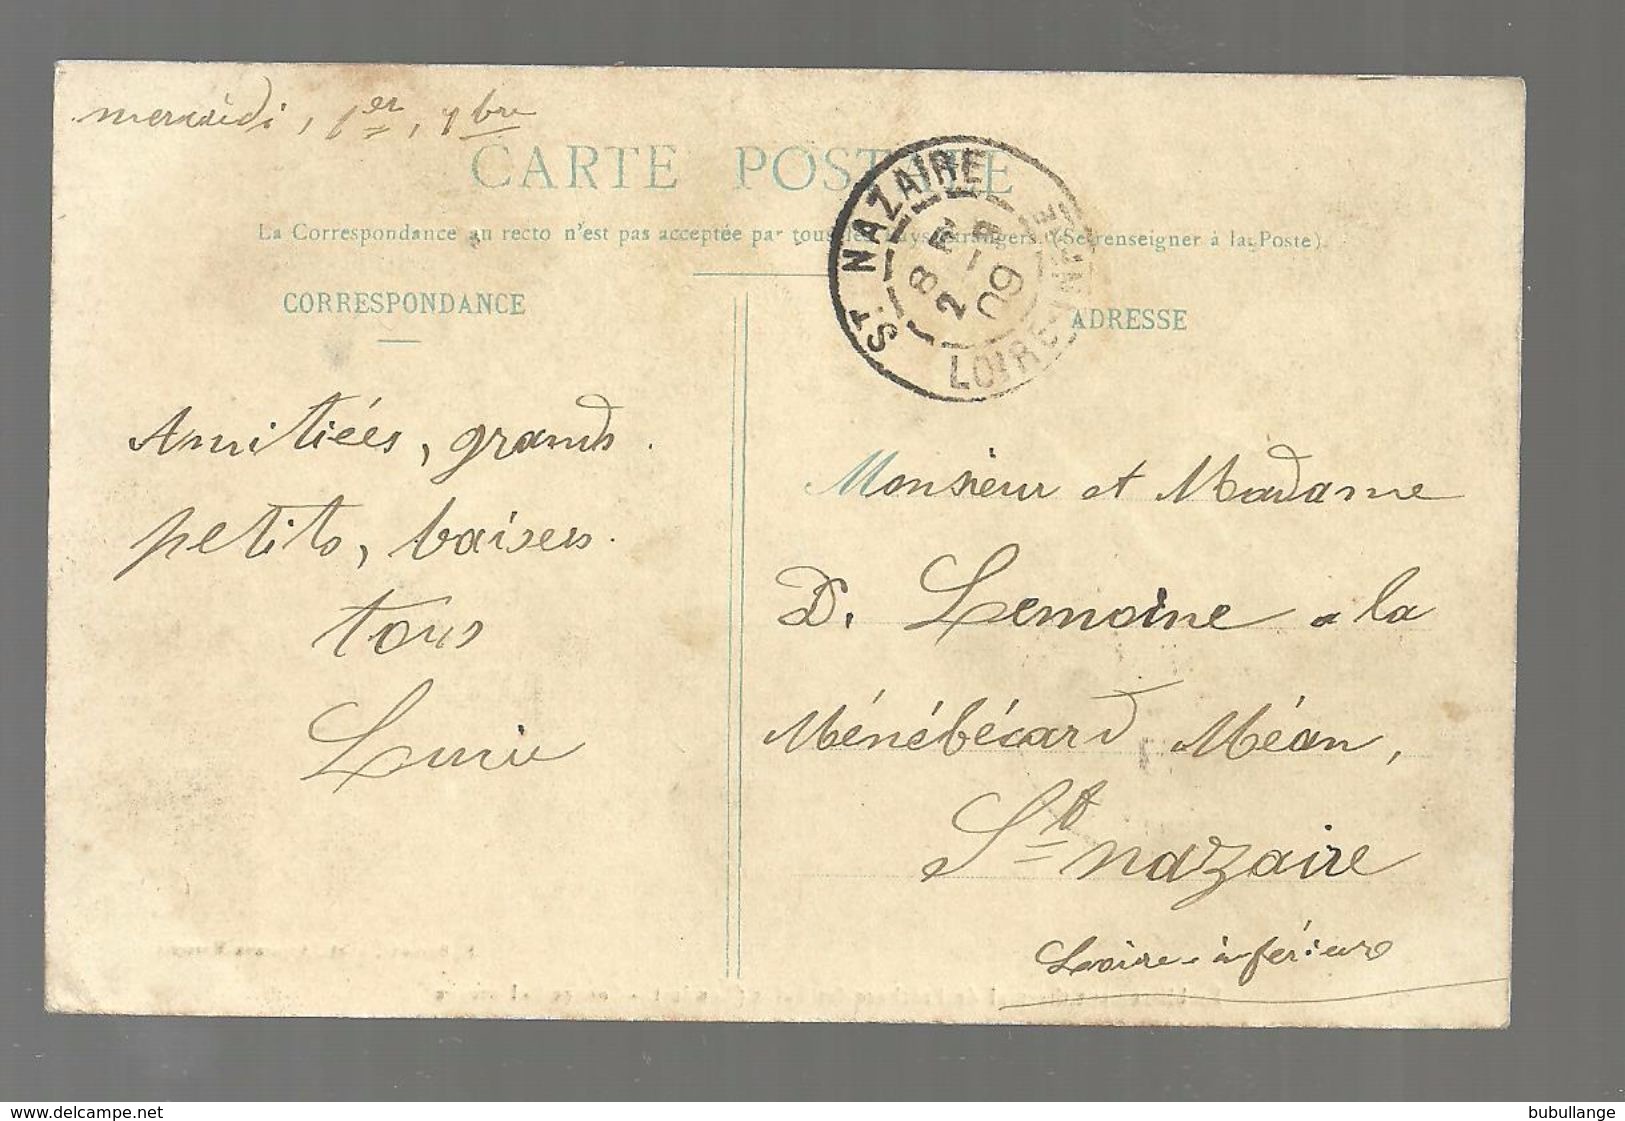 mercredi, 1er, 7bre
CARTE POSTALE
La Correspondance au recto n'est pas acceptée par tous les Pays étrangers. (Se renseigner à la Poste).
ST NAZAIRE
8 E
2 - 9
09
LOIRE-INFRE
CORRESPONDANCE
ADRESSE
Amitiées, grands.
petits, baisers.
tous
Lucie
Monsieur et Madame
D. Lemoine a la
Ménébécard Méan,
St nazaire
Loire-inférieure
www.delcampe.net
bubullange